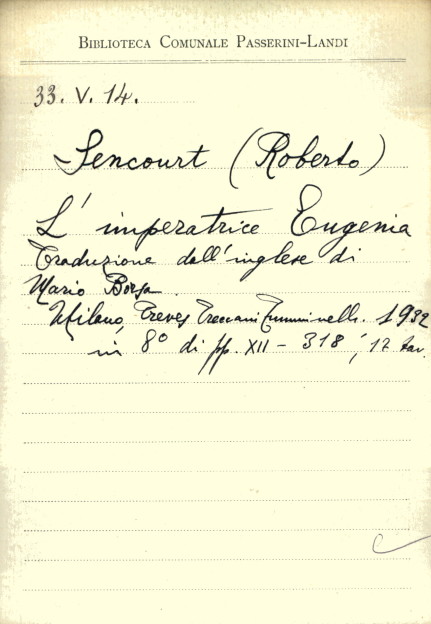 BIBLIOTECA COMUNALE PASSERINI-LANDI
33. V. 14.
Sencourt (Roberto)
L'imperatrice Eugenia
Traduzione dall'inglese di
Mario Borsa.
Milano, Treves Treccani Tumminelli. 1932
in 8° di pp. XII - 318, 17 tav.